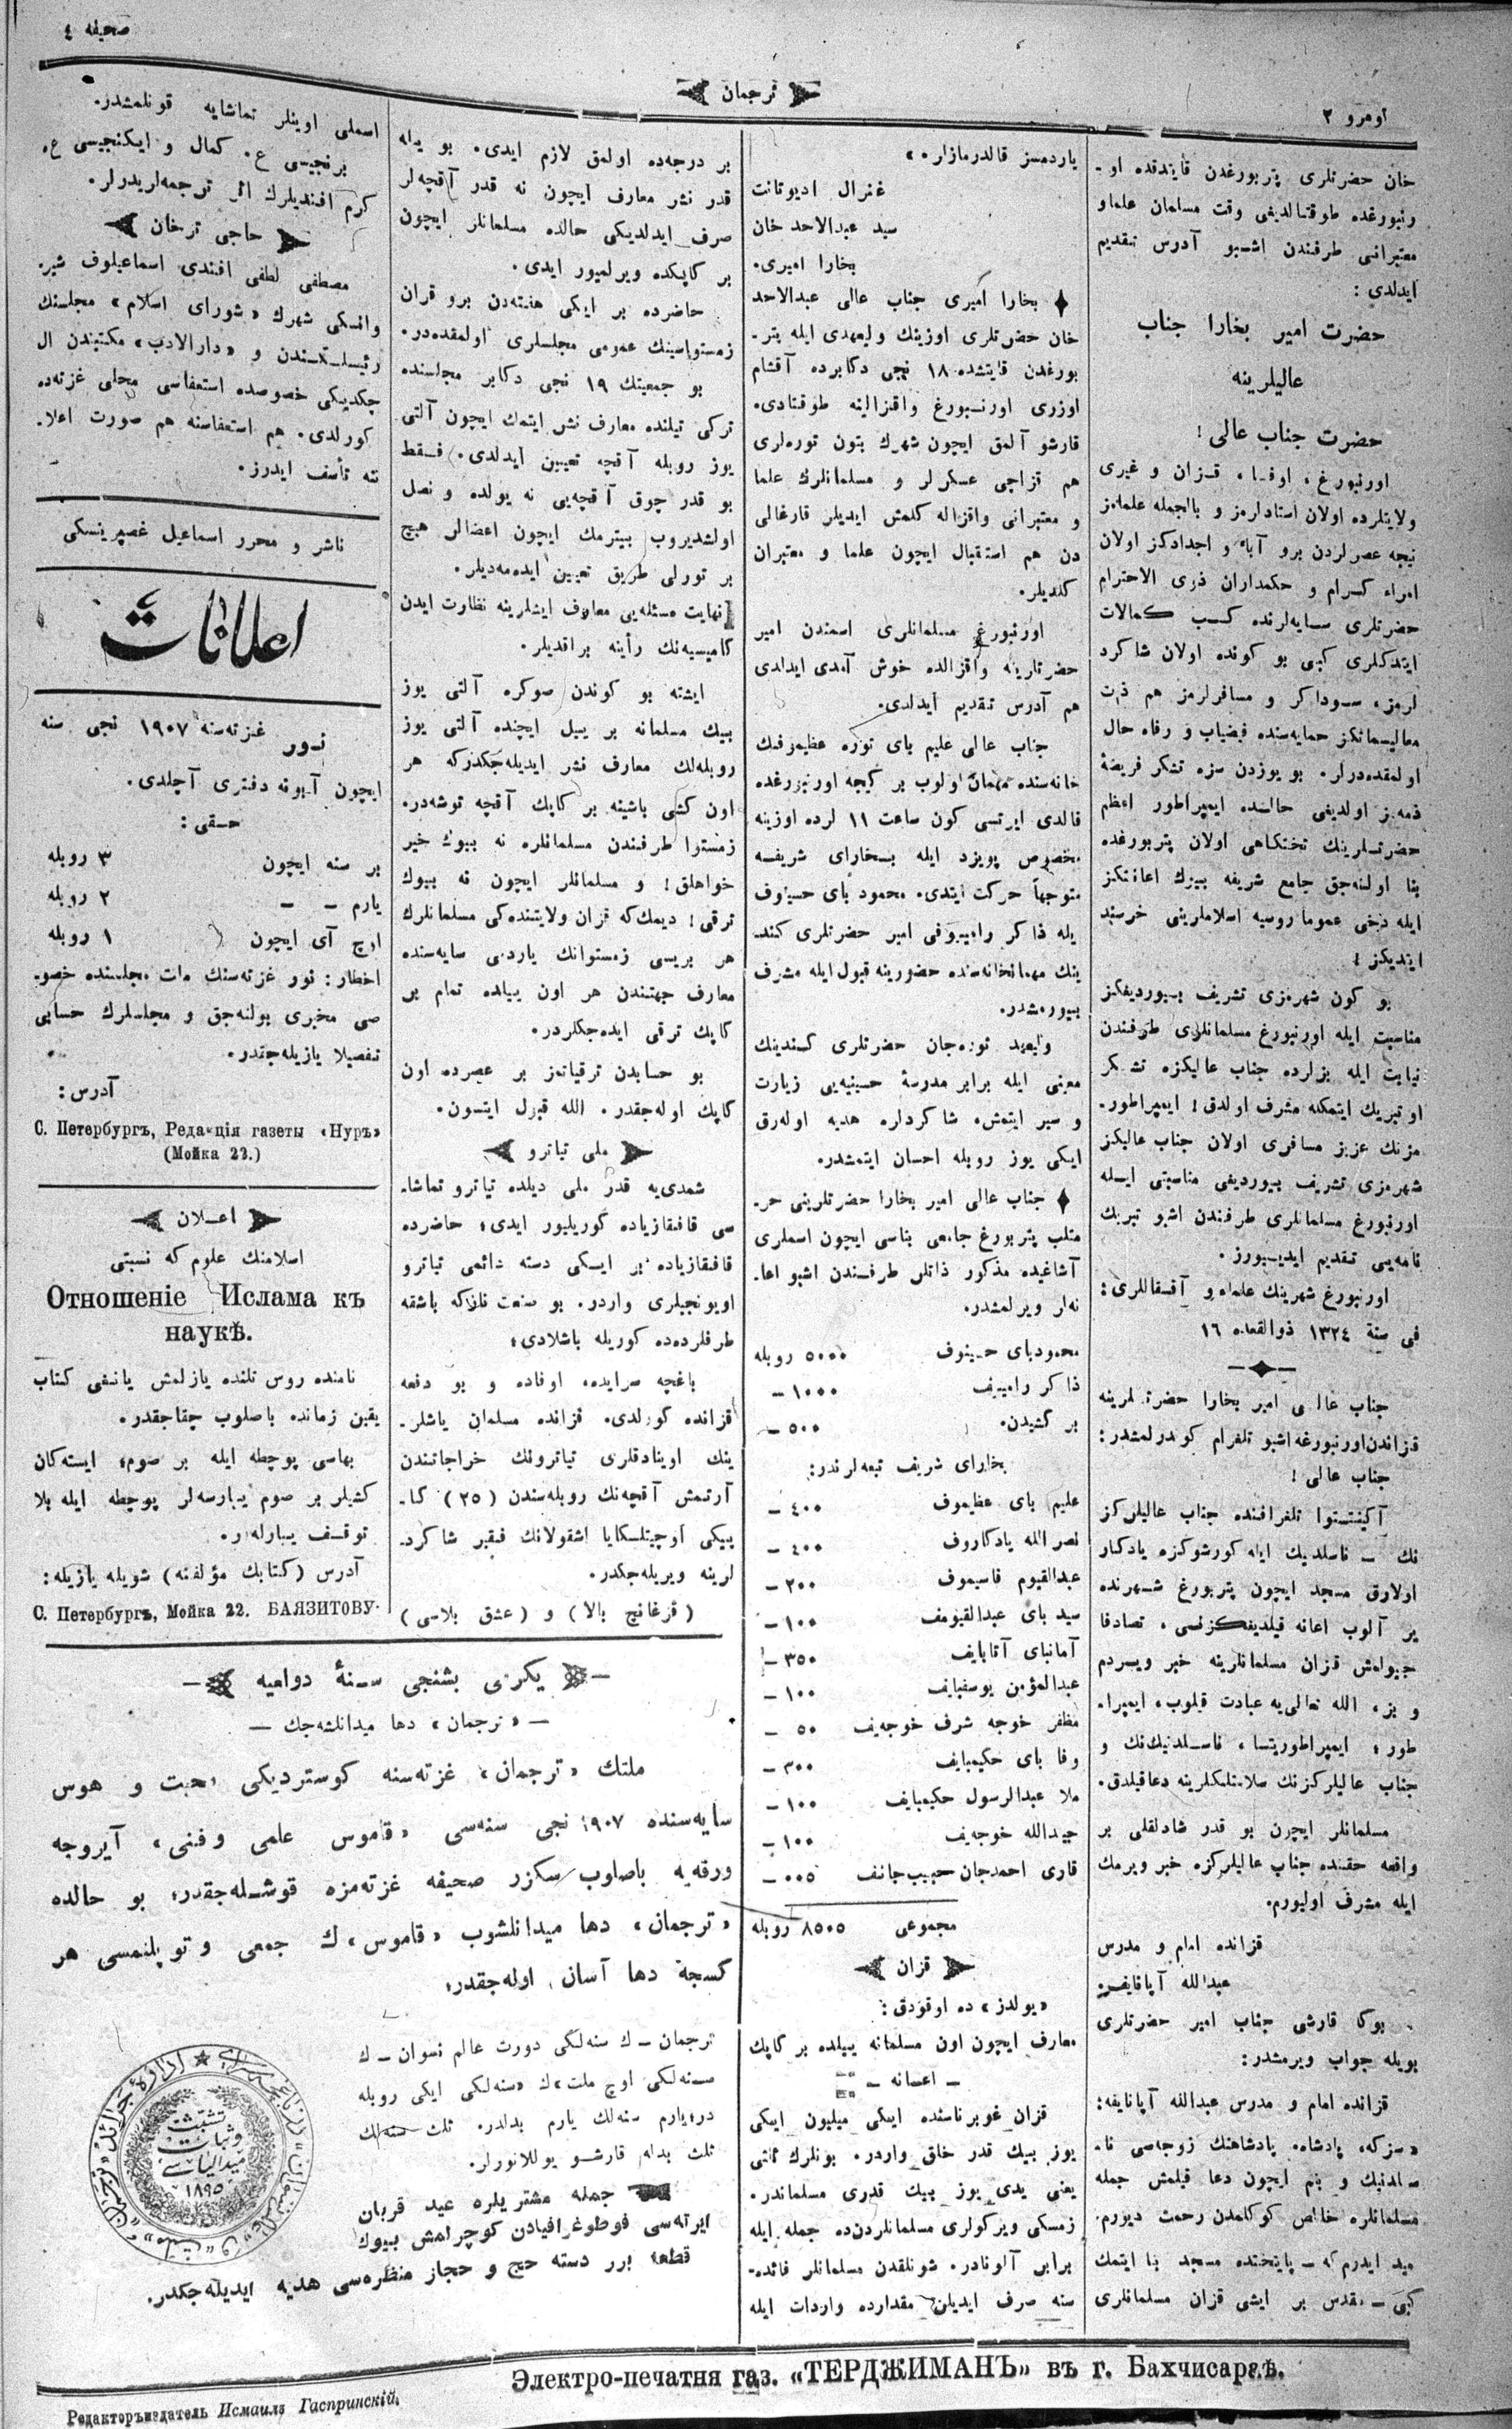 صحیفه ٤
ترجمان
نومرو ٢
خان حضرتلری پتربورغدن قایتدقده او-
رنبورغده طوقتالدیغی وقت مسلمان علماو
معتبرانی طرفندن اشبو آدرس تقدیم
ایدلدی :
حضرت امیر بخارا جناب
عالیلرینه
حضرت جناب عالی !
اورنبورغ، اوفا، قزان و غیری
ولایتلرده اولان استادلرمز و بالجمله علمامز
نیچه عصرلردن برو آباء و اجدادکز اولان
امراء کرام و حکمداران ذوی الاحترام
حضرتلری سایه‌لرنده کسب کمالات
ایتدکلری کبی بو کونده اولان شاکرد
لرمز، سوداکر و مسافرلرمز هم ذات
معالیسماتکز حمایه‌سنده فیضیاب و رفاه حال
اولمقده‌درلر. بو یوزدن سزه تشکر فریضهٔ
ذمه‌مز اولدیغی حالده ایمپراطور اعظم
حضرتلرینك تختکاهی اولان پتربورغده
بنا اولنه‌جق جامع شریفه بیوك اعانتکز
ایله دخی عموما روسیه اسلاملرینی خرسند
ایتدیکز !
بو کون شهرمزی تشریف بیوردیغکز
مناسبت ایله اورنبورغ مسلمانلری طرفندن
نیابت ایله بزلرده جناب عالیکزه تشکر
او تبریك ایتمکله مشرف اولدق ! ایمپراطور-
مزنك عزیز مسافری اولان جناب عالیکز
شهرمزی تشریف بیوردیغی مناسبتی ایله
اورنبورغ مسلمانلری طرفندن اشبو تبریك
نامه‌یی تقدیم ایدیورز .
اورنبورغ شهرینك علماء و آقسقاللری :
فی سنة ١٣٢٤ ذوالقعده ١٦
جناب عالی امیر بخارا حضرتلرینه
قزاندن اورنبورغه اشبو تلغرام کوندرلمشدر :
جناب عالی !
آکینتستوا تلغرافنده جناب عالیلرکز
نك - ناسلدنیك ایله کورشوکزه یادکار
اولارق مسجد ایچون پتربورغ شهرنده
یر آلوب اعانه قیلدیغکزنسی، تصادفا
جیولمش قزان مسلمانلرینه خبر ویردم
و بز، الله تعالی‌یه عبادت قیلوب، ایمپرا-
طور ؛ ایمپراطوریتسا، ناسلدنیك‌نك و
جناب عالیلرکزنك سلامتلکلرینه دعا قیلدق.
مسلمانلر ایچون بو قدر شادلقلی بر
واقعه حقنده جناب عالیلرکزه خبر ویرمك
ایله مشرف اولیورم.
قزانده امام و مدرس
عبدالله آپانایف
بوکا قارشی جناب امیر حضرتلری
بویله جواب ویرمشدر :
قزانده امام و مدرس عبدالله آپانایفه :
«سزکه، پادشاه، پادشاهنك زوجه‌سی نا-
سلدنیك و بنم ایچون دعا قیلمش جمله
مسلمانلره خالص کوکلمدن رحمت دیورم.
امید ایدرم که - پایتختده مسجد بنا ایتمك
کبی - مقدس بر ایشی قزان مسلمانلری
یاردمسز قالدرمازلار. »
غنرال ادیوتانت
سید عبدالاحد خان
بخارا امیری.
بخارا امیری جناب عالی عبدالاحد
خان حضرتلری اوزینك ولیعهدی ایله پتر-
بورغدن قایتشده ١٨ نچی دکابرده آقشام
اوزری اورنبورغ واقزالینه طوقتادی.
قارشو آلمق ایچون شهرك بتون توره‌لری
هم قزاچی عسکرلر و مسلمانلرك علما
و معتبرانی واقزاله کلمش ایدیلر قارغالی
دن هم استقبال ایچون علما و معتبران
کلدیلر.
اورنبورغ مسلمانلری اسمندن امیر
حضرتلرینه واقزالده خوش آمدی ایدلدی
هم آدرس تقدیم ایدلدی.
جناب عالی علیم بای توره عظیموفنك
خانه‌سنده مهمان اولوب بر کیچه اورنبورغده
قالدی ایرتسی کون ساعت ١١ لرده اوزینه
مخصوص پویزد ایله بخارای شریفه
متوجهاً حرکت ایتدی. محمود بای حسینوف
یله ذاکر رامییوفی امیر حضرتلری کند-
ینك مهمانخانه‌سنده حضورینه قبول ایله مشرف
بیورمشدر.
ولیعهد توره‌جان حضرتلری کندینك
معینی ایله برابر مدرسهٔ حسینیه‌یی زیارت
و سیر ایتمش، شاکردلره هدیه اوله‌رق
ایکی یوز روبله احسان ایتمشدر.
جناب عالی امیر بخارا حضرتلرینی حر-
متلب پتربورغ جامعی بناسی ایچون اسملری
آشاغیده مذکور ذاتلر طرفندن اشبو اعا-
نه‌لر ویرلمشدر.
محمودبای حسینوف ٥٠٠٠ روبله
ذاکر رامییف ١٠٠٠ -
بر کشیدن. ٥٠٠ -
بخارای شریف تبعه‌لرندن :
علیم بای عظیموف ٤٠٠ -
نصرالله یادکاروف ٤٠٠ -
عبدالقیوم قاسیموف ٢٠٠ -
سید بای عبدالقیومف ١٠٠ -
آمانبای آتابایف ٣٥٠ -
عبدالمؤمن یوسفبایف ١٠٠ -
مظفر خوجه شرف خوجه‌یف ٥٠ -
وفا بای حکیمبایف ٣٠٠ -
ملا عبدالرسول حکیمبایف ١٠٠ -
خوجه‌یف ١٠٠ -
قاری احمدجان حبیب‌جانف ٠٠٥ -
مجموعی ٨٥٠٥ روبله
قزان
«یولدز» ده اوقودق :
معارف ایچون اون مسلمانه ییلده بر کاپك
- اعانه -
قزان غوبرناسنده ایکی میلیون ایکی
یوز بیك قدر خلق واردر. بونلرك ثلثی
یعنی یدی یوز بیك قدری مسلماندر.
زمسکی ویرکولری مسلمانلردن‌ده جمله ایله
برابر آلونادر. شونلقدن مسلمانلر فائده-
سنه صرف ایدیلن مقدارده واردات ایله
بر درجه‌ده اولمق لازم ایدی. بو یله
قدر نشر معارف ایچون نه قدر آقچه‌لر
صرف ایدلدیکی حالده مسلمانلر ایچون
بر کاپکده ویرلمیور ایدی.
حاضرده بر ایکی هفته‌دن برو قزان
زمستواسینك عمومی مجلسلری اولمقده‌در.
بو جمعیتك ١٩ نجی دکابر مجلسنده
ترکی تیلنده معارف نشر ایتمك ایچون آلتی
یوز روبله آقچه تعیین ایدلدی. فقط
بو قدر چوق آقچه‌یی نه یولده و نصل
اولشدیروب بیترمك ایچون اعضالر هیچ
بر تورلی طریق تعیین ایده‌مه‌دیلر.
نهایت مسئله‌یی معارف ایشلرینه نظارت ایدن
کامیسیه‌نك رأینه براقدیلر.
ایشته بو کوندن صوکره آلتی یوز
بیك مسلمانه بر ییل ایچنده آلتی یوز
روبله‌لك معارف نشر ایدیله‌جکدرکه هر
اون کشی باشینه بر کاپك آقچه توشه‌در.
زمستوا طرفندن مسلمانلره نه بیوك خیر
خواهلق ! و مسلمانلر ایچون نه بیوك
ترقی ! دیمك‌که قزان ولایتنده‌کی مسلمانلرك
هر بریسی زمستوانك یاردمی سایه‌سنده
معارف جهتندن هر اون ییلده تمام بر
کاپك ترقی ایده‌جکلردر.
بو حسابدن ترقیاتمز بر عصرده اون
کاپك اوله‌جقدر. الله قبول ایتسون.
ملی تیاترو
شمدی‌یه قدر ملی دیلده تیاترو تماشا-
سی قافقازیاده کوریلیور ایدی ؛ حاضرده
قافقازیاده بر ایکی دسته دائمی تیاترو
اویونجیلری واردر. بو صنعت نفاذکه باشقه
طرفلرده‌ده کوریله باشلادی ؛
باغچه سرایده، اوفاده و بو دفعه
قزانده کورلدی. قزانده مسلمان یاشلر-
ینك اوینادقلری تیاترونك خراجاتندن
آرتمش آقچه‌نك روبله‌سندن (٢٥) کا-
پیکی اوچیتلسکایا اشقولانك فقیر شاکرد-
لرینه ویریله‌جکدر.
(قزغانچ بالا) و (عشق بلاسی)
اسملی اوینلر تماشایه قونلمشدر.
برنجیسی ع. کمال و ایکنجیسی ع.
کرم افندیلرك اثر ترجمه‌لریدرلر.
حاجی ترخان
مصطفی لطفی افندی اسماعیلوف شیر-
وانسکی شهرك «شورای اسلام» مجلسنك
رئیسلکندن و «دارالادب» مکتبندن ال
چکدیکی خصوصده استعفاسی محلی غزته‌ده
کورلدی. هم استعفاسنه هم صورت اعلا-
ننه تأسف ایدرز.
ناشر و محرر اسماعیل غصپرینسکی
اعلانات
نور غزته‌سنه ١٩٠٧ نجی سنه
ایچون آبونه دفتری آچلدی.
حقی :
بر سنه ایچون ٣ روبله
یارم - - ٢ روبله
اوچ آی ایچون ١ روبله
اخطار : نور غزته‌سنك دولت مجلسنده خصو-
صی مخبری بولنه‌جق و مجلسلرك حسابی
تفصیلا یازیله‌جقدر.
آدرس :
С. Петербургъ, Редакція газеты «Нуръ»
(Мойка 22.)
اعلان
اسلامنك علوم که نسبتی
Отношеніе Ислама къ
наукѣ.
نامنده روس تلنده یازلمش یانغی کتاب
یقین زمانده باصلوب چقاجقدر.
بهاسی پوچطه ایله بر صوم ؛ ایسته‌کان
کشیلر بر صوم یبارسه‌لر پوچطه ایله بلا
توقف یبارله‌ر.
آدرس (کتابك مؤلفنه) شویله یازیله :
С. Петербургъ, Мойка 22. БАЯЗИТОВУ.
یکرمی بشنجی سنهٔ دوامیه
- «ترجمان» دها میدانلشه‌جك -
ملتك «ترجمان» غزته‌سنه کوستردیکی محبت و هوس
سایه‌سنده ١٩٠٧ نجی سنه‌سی «قاموس علمی وفنی» آیروجه
ورقه‌یه باصلوب سکزر صحیفه غزته‌مزه قوشله‌جقدر ؛ بو حالده
«ترجمان» دها میدانلشوب «قاموس» ك جمعی و توپلنمسی هر
کسجه دها آسان اوله‌جقدر ؛
ترجمان - ك سنه‌لکی دورت عالم نسوان - ك
سنه‌لکی اوچ ملت» ك سنه‌لکی ایکی روبله
در ؛ یارم سنه‌لك یارم بدلدر. ثلث سنه‌لك
ثلث بدله قارشو یوللانورلر.
جمله مشتریلره عید قربان
ایرته‌سی فوطوغرافیادن کوچرلمش بیوك
قطعه برر دسته حج و حجاز منظره‌سی هدیه ایدیله‌جکدر.
١٨٩٥
Электро-печатня газ. «ТЕРДЖИМАНЪ» въ г. Бахчисараѣ.
Редакторъ-издатель Исмаилъ Гаспринскій.